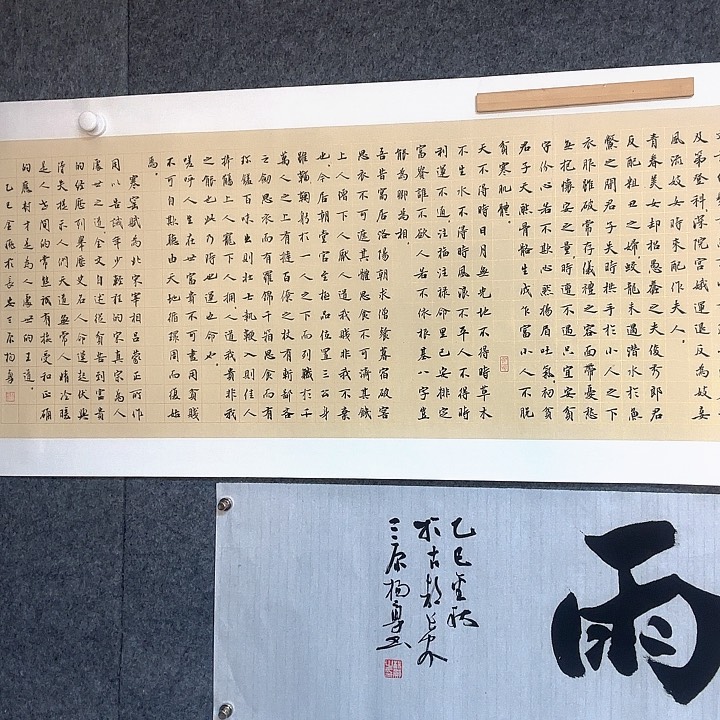 及弟登科深院宫娥運退反為妓妾
風流妓女時來配作夫人。
青春美女却招愚蠢之夫俊秀郎君
反配粗丑之婦,蛟龍未遇潛水於魚
鱉之間君子失時拱手於小人之下
衣服雖破常存儀禮之容面帶憂愁
每抱懷安之量,時遭不遇只宜安貧
守份心若不欺必然揚眉吐氣,初貧
君子天然骨骼生成乍富小人不脱
貧寒肌體。
天不得時日月無光地不得時草木
不生水不得時風浪不平人不得時
利運不通注福注禄命里已安排定
富貴誰不欲人若不依根基八字豈
能為卿為相。
吾昔寓居洛陽朝求僧餐暮宿破窑
思衣不可遮其體思食不可濟其餓
上人憎下人厭人道我賤非我不棄
也,今居朝堂官至極品位置三公身
雖鞠躬於一人之下而列職於千
萬人之上有撻百僚之杖有斬鄙吝
之劍思衣而有羅錦千箱思食而有
珍饈百味出則壯士執鞭入則佳人
捧觴上人寵下人擁人道我貴非我
之能也此乃時也運也命也。
嗟呼人生在世富貴不可盡用貧賤
不可自欺聽由天地循環周而復始
焉。
寒窑賦為北宋宰相吕蒙正所作
用以告誡年少輕狂的宋真宗為人
處世之道全文自述從貧苦到富貴
的經歷列舉歷史名人命運起伏與
浮夫提示人們天道無常人情冷暖
是人世間的常態祇有接受和正確
的應對才是為人處世的王道。
乙巳金秋於長安三原楊
雨
乙巳金秋
於古都長安
三原楊書